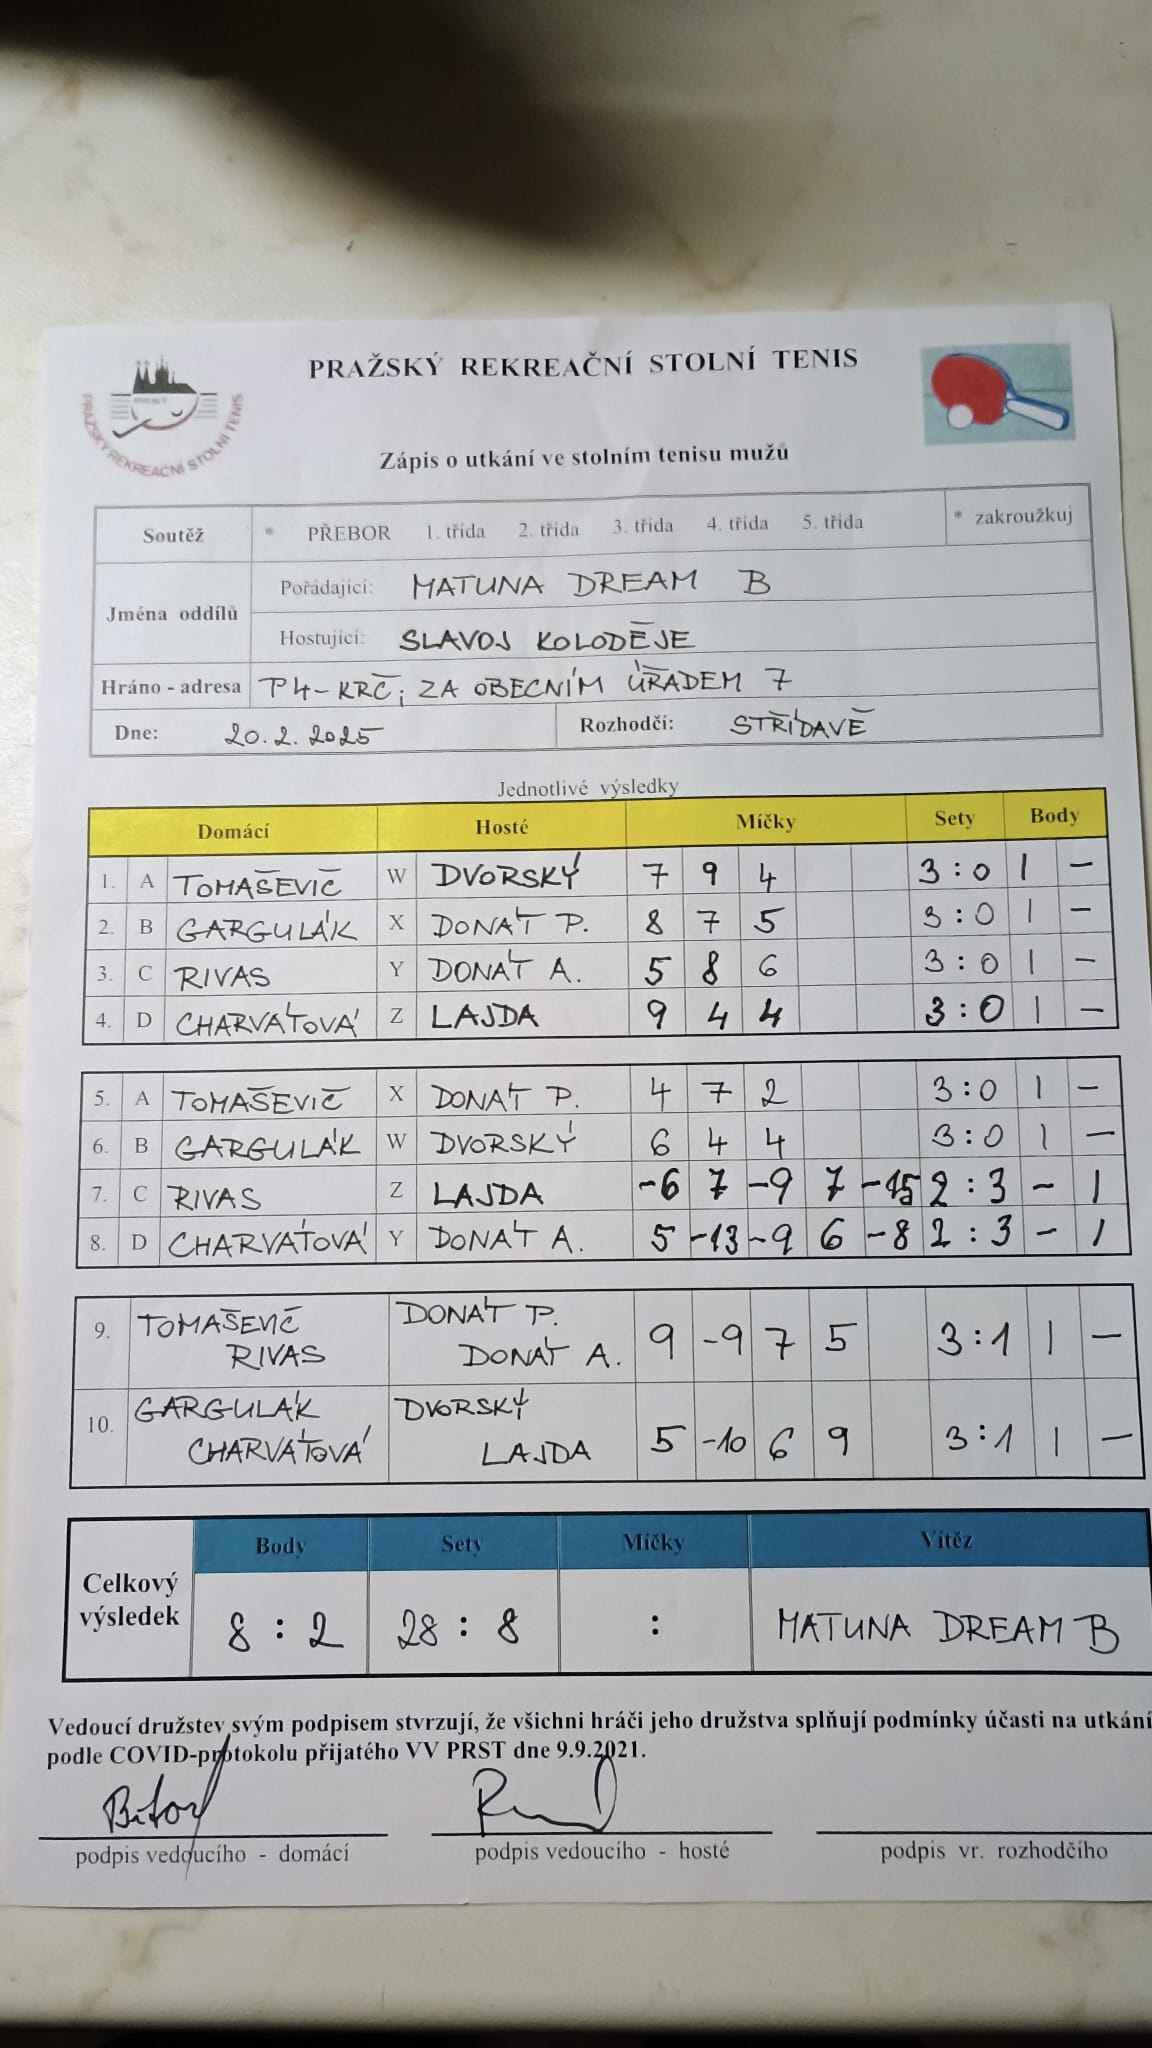 PRAŽSKÝ REKREAČNÍ STOLNÍ TENIS
PRST
PRAŽSKÝ REKREAČNÍ STOLNÍ TENIS
Zápis o utkání ve stolním tenisu mužů
Soutěž * PŘEBOR 1. třída 2. třída 3. třída 4. třída 5. třída * zakroužkuj
Jména oddílů
Pořádající: MATUNA DREAM B
Hostující: SLAVOJ KOLODĚJE
Hráno - adresa P4-KRČ, ZA OBECNÍM ÚŘADEM 7
Dne: 20.2.2025 Rozhodčí: STŘÍDAVĚ
Jednotlivé výsledky
Domácí Hosté Míčky Sety Body
1. A TOMAŠEVIČ W DVORSKÝ 7 9 4 3:0 1 -
2. B GARGULÁK X DONÁT P. 8 7 5 3:0 1 -
3. C RIVAS Y DONÁT A. 5 8 6 3:0 1 -
4. D CHARVÁTOVÁ Z LAJDA 9 4 4 3:0 1 -
5. A TOMAŠEVIČ X DONÁT P. 4 7 2 3:0 1 -
6. B GARGULÁK W DVORSKÝ 6 4 4 3:0 1 -
7. C RIVAS Z LAJDA -6 7 -9 7 -15 2:3 - 1
8. D CHARVÁTOVÁ Y DONÁT A. 5 -13 -9 6 -8 2:3 - 1
9. TOMAŠEVIČ DONÁT P.
RIVAS DONÁT A. 9 -9 7 5 3:1 1 -
10. GARGULÁK DVORSKÝ
CHARVÁTOVÁ LAJDA 5 -10 6 9 3:1 1 -
Body Sety Míčky Vítěz
Celkový výsledek 8:2 28:8 : MATUNA DREAM B
Vedoucí družstev svým podpisem stvrzují, že všichni hráči jeho družstva splňují podmínky účasti na utkání
podle COVID-protokolu přijatého VV PRST dne 9.9.2021.
podpis vedoucího - domácí podpis vedoucího - hosté podpis vr. rozhodčího